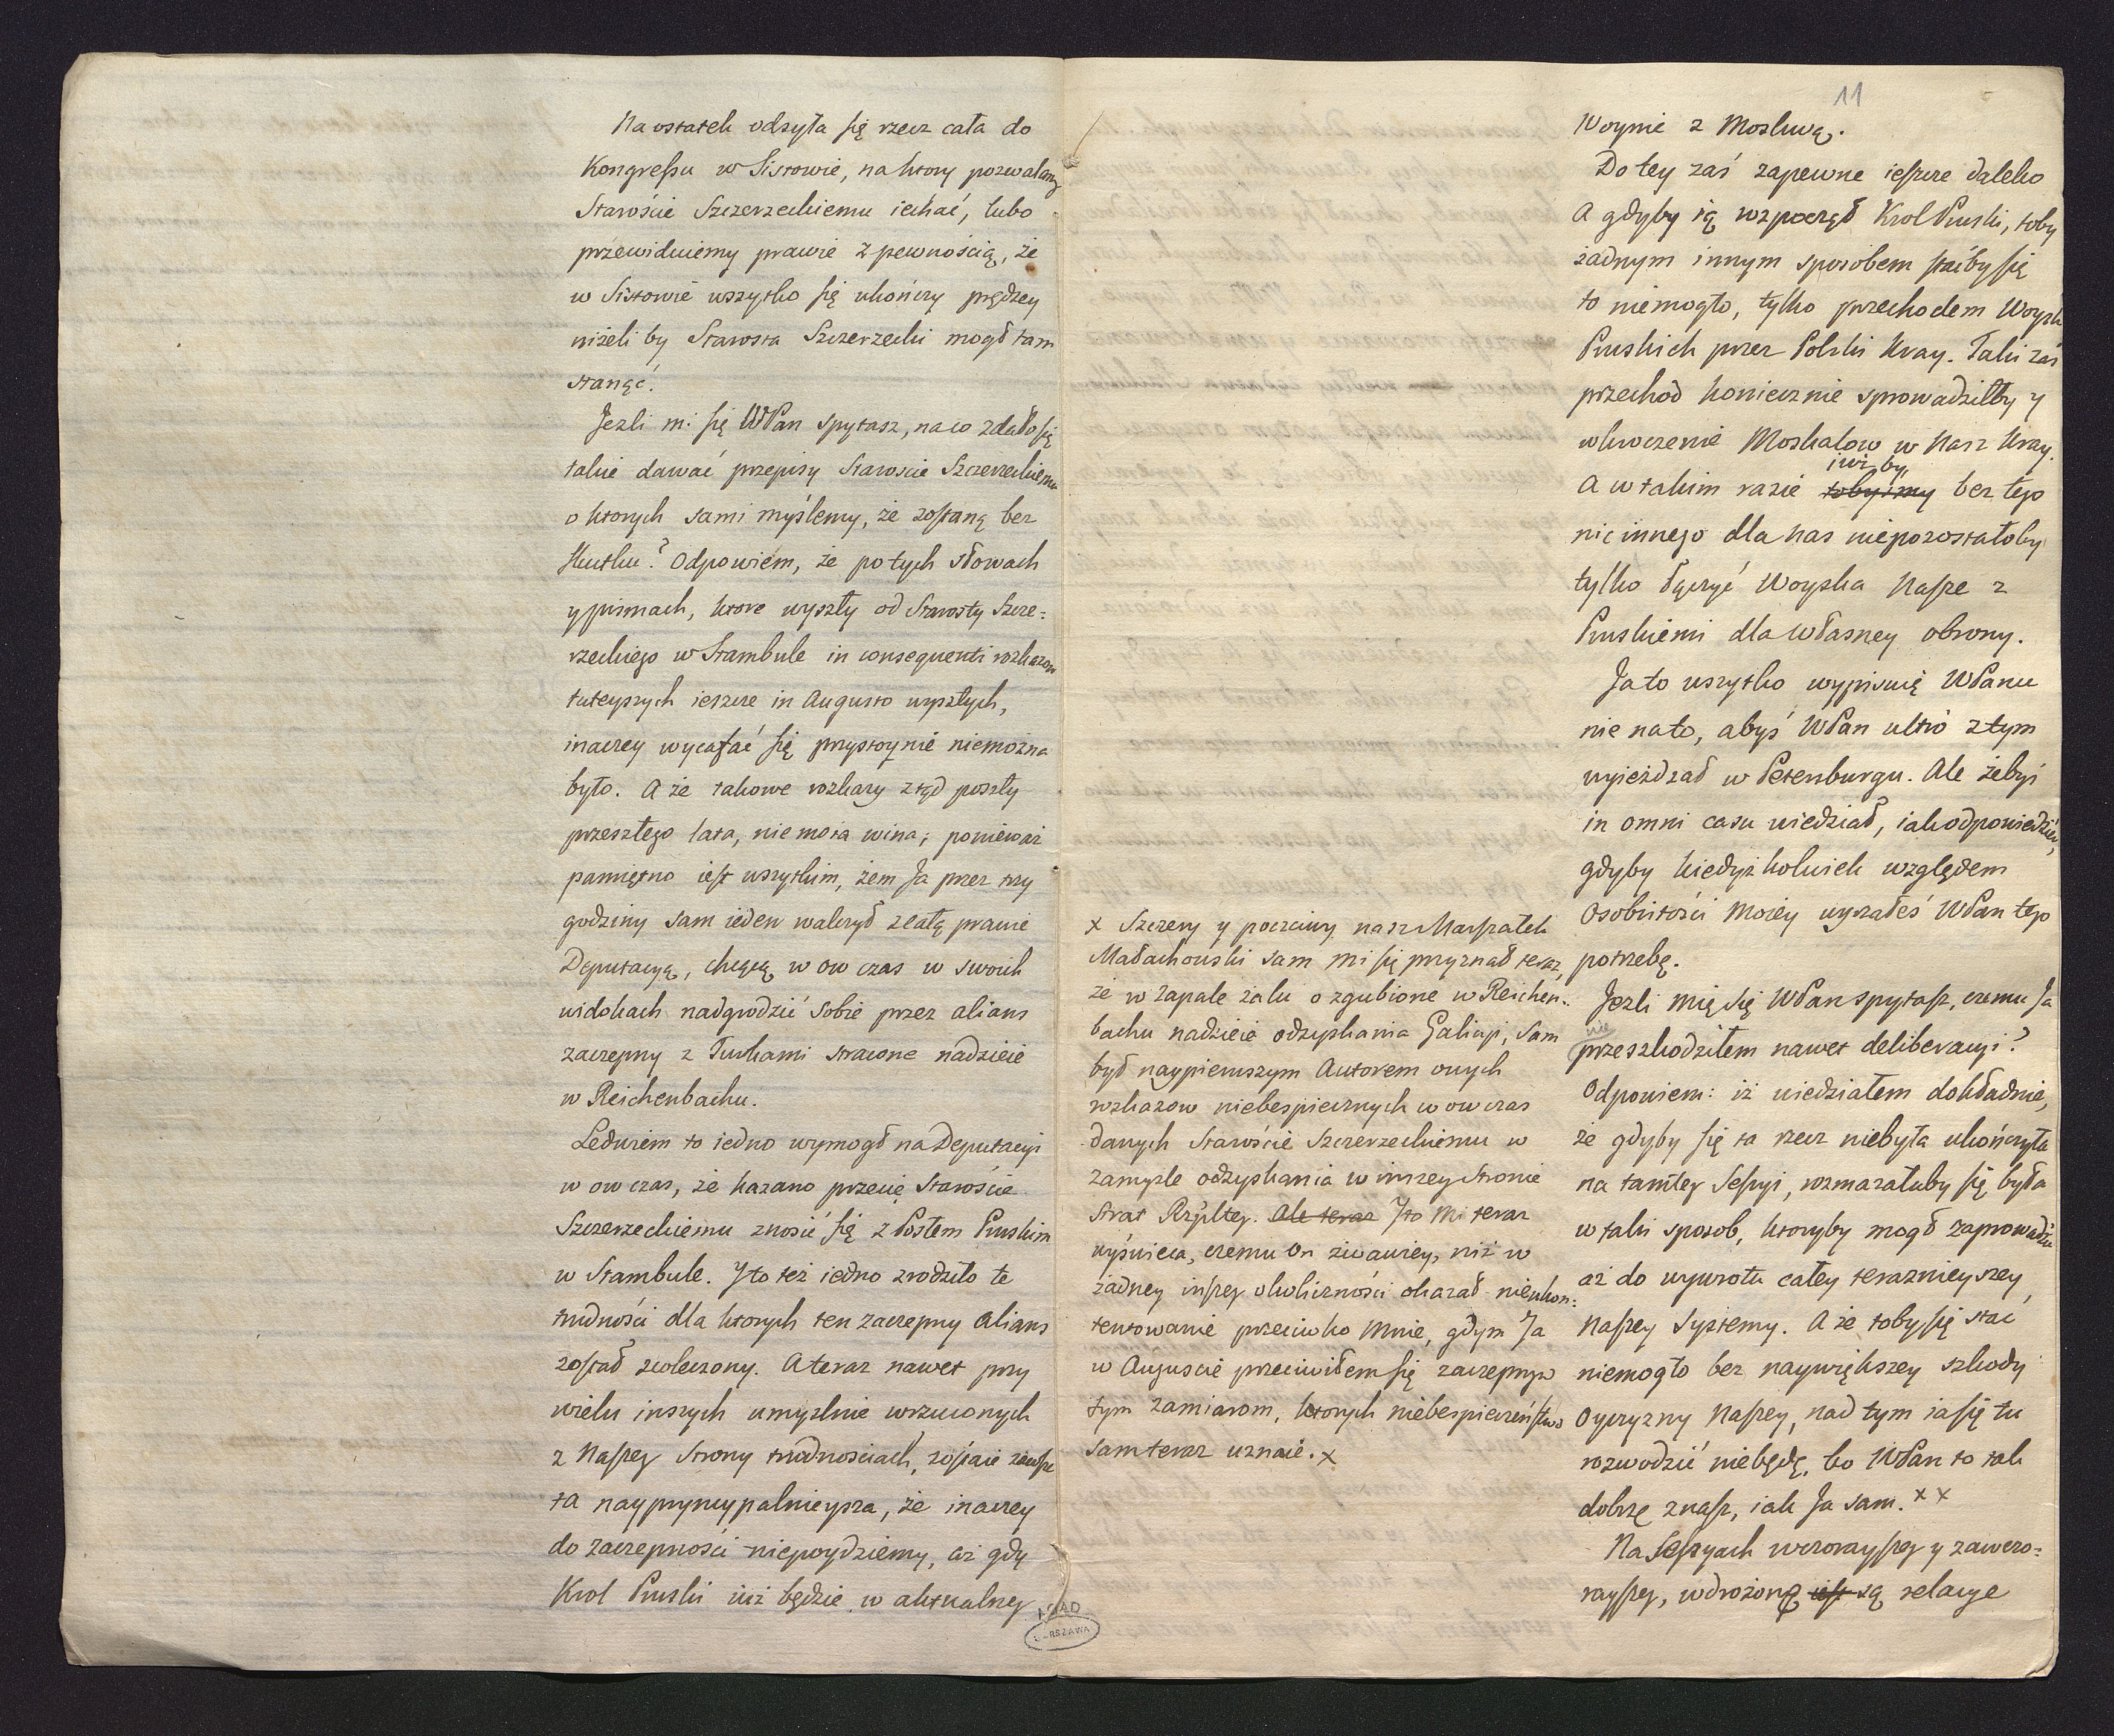 Na ostatek odsyła się rzecz cała do
Kongressu w Sistowie, na ktory pozwalamy
Staroście Szczerzeckiemu iechać, lubo
przewiduiemy prawie z pewnością, że
w Sistowie wszytko się ukończy prędzey
niżeli by Starosta Szczerzecki mogł tam
stanąć.
Jezli mi się WPan spytasz, na co zdało się
takie dawać przepisy Staroscie Szczerzeckiemu
o ktorych sami myślemy, że zostaną bez
skutku? Odpowiem, że po tych słowach
y pismach, ktore wyszły od Starosty Szcze=
rzeckiego w Stambule in consequenti rozkazow
tuteyszych ieszcze in Augusto wyszłych,
inaczey wycofać się przystoynie niemożna
było. A że takowe rozkazy ztąd poszły
przeszłego lata, nie moia wina; ponieważ
pamiętno iest wszytkim, żem Ja przez trzy
godziny sam ieden walczył z całą prawie
Deputacyą, chcącą w ow czas w swoich
widokach nadgrodzić sobie przez alians
zaczepny z Turkami stracone nadzieie
w Reichenbachu.
Ledwiem to iedno wymogł na Deputacyi
w ow czas, że kazano przecię Staroście
Szczerzeckiemu znosić się z Posłem Pruskim
w Stambule. Y to też iedno zrodziło te
trudności dla ktorych ten zaczepny alians
został zwleczony. A teraz nawet przy
wielu inszych umyslnie wrzuconych
z Naszey strony trudnościach, zostaie zawsze
ta naypryncypalnieysza, że inaczey
do zaczepności niepoydziemy, aż gdy
Krol Pruski iuż będzie w aktualney
AGAD
WARSZAWA
x Szczery y poczciwy nasz Marszałek
Małachowski sam mi się przyznał teraz,
że w zapale żalu o zgubione w Reichen=
bachu nadzieie odzyskania Galicyi, sam
był naypierwszym Autorem onych
rozkazow niebespiecznych w ow czas
danych Staroście Szczerzeckiemu w
zamyśle odzyskania w inszey stronie
strat Rzpltey. Ale teraz Y to mi teraz
wyświeca, czemu On żwawiey, niż w
żadney inszey okoliczności okazał nieukon=
tentowanie przeciwko mnie, gdym Ja
w Auguscie przeciwiłem się zaczepnym
tym zamiarom, ktorych niebespieczeństwo
sam teraz uznaie. x
11
Woynie z Moskwą.
Do tey zaś zapewne ieszcze daleko
A gdyby ią wzpoczął Krol Pruski, toby
żadnym innym sposobem staćby się
to niemogło, tylko przechodem Woysk
Pruskich przez Polski kray. Taki zaś
przechod koniecznie sprowadziłby y
wkroczenie Moskalow w Nasz kray.
iuż by
A w takim razie tobyśmy bez tego
nic innego dla nas niepozostałoby
tylko łączyć Woyska Nasze z
Pruskiemi dla własney obrony.
Ja to wszytko wypisuię WPanu
nie na to, abyś WPan ultro z tym
wyieżdzał w Petersburgu. Ale żebyś
in omni casu wiedział, iak odpowiedzieć,
gdyby kiedyżkolwiek względem
Osobistości moiey uyrzałeś WPan tego
potrzebę.
Jezli mię się WPan spytasz, czemu Ja
nie
przeszkodziłem nawet deliberacyi?
Odpowiem: iż wiedziałem dokładnie,
że gdyby się ta rzecz niebyła ukończyła
na tamtey Sessyi, wzmagałaby się była
w taki sposob, ktoryby mogł zaprowadzić
aż do wywrotu całey terazniejszey
Naszey Systemy. A że toby się stać
niemogło bez naywiększey szkody
Oyczyzny Naszey, nad tym ia się tu
rozwodzić niebędę, bo WPan to tak
dobrze znasz, iak Ja sam. x x
Na Sessyach wczorayszey y zawczo=
rayszey, wdrożone iest są relacye